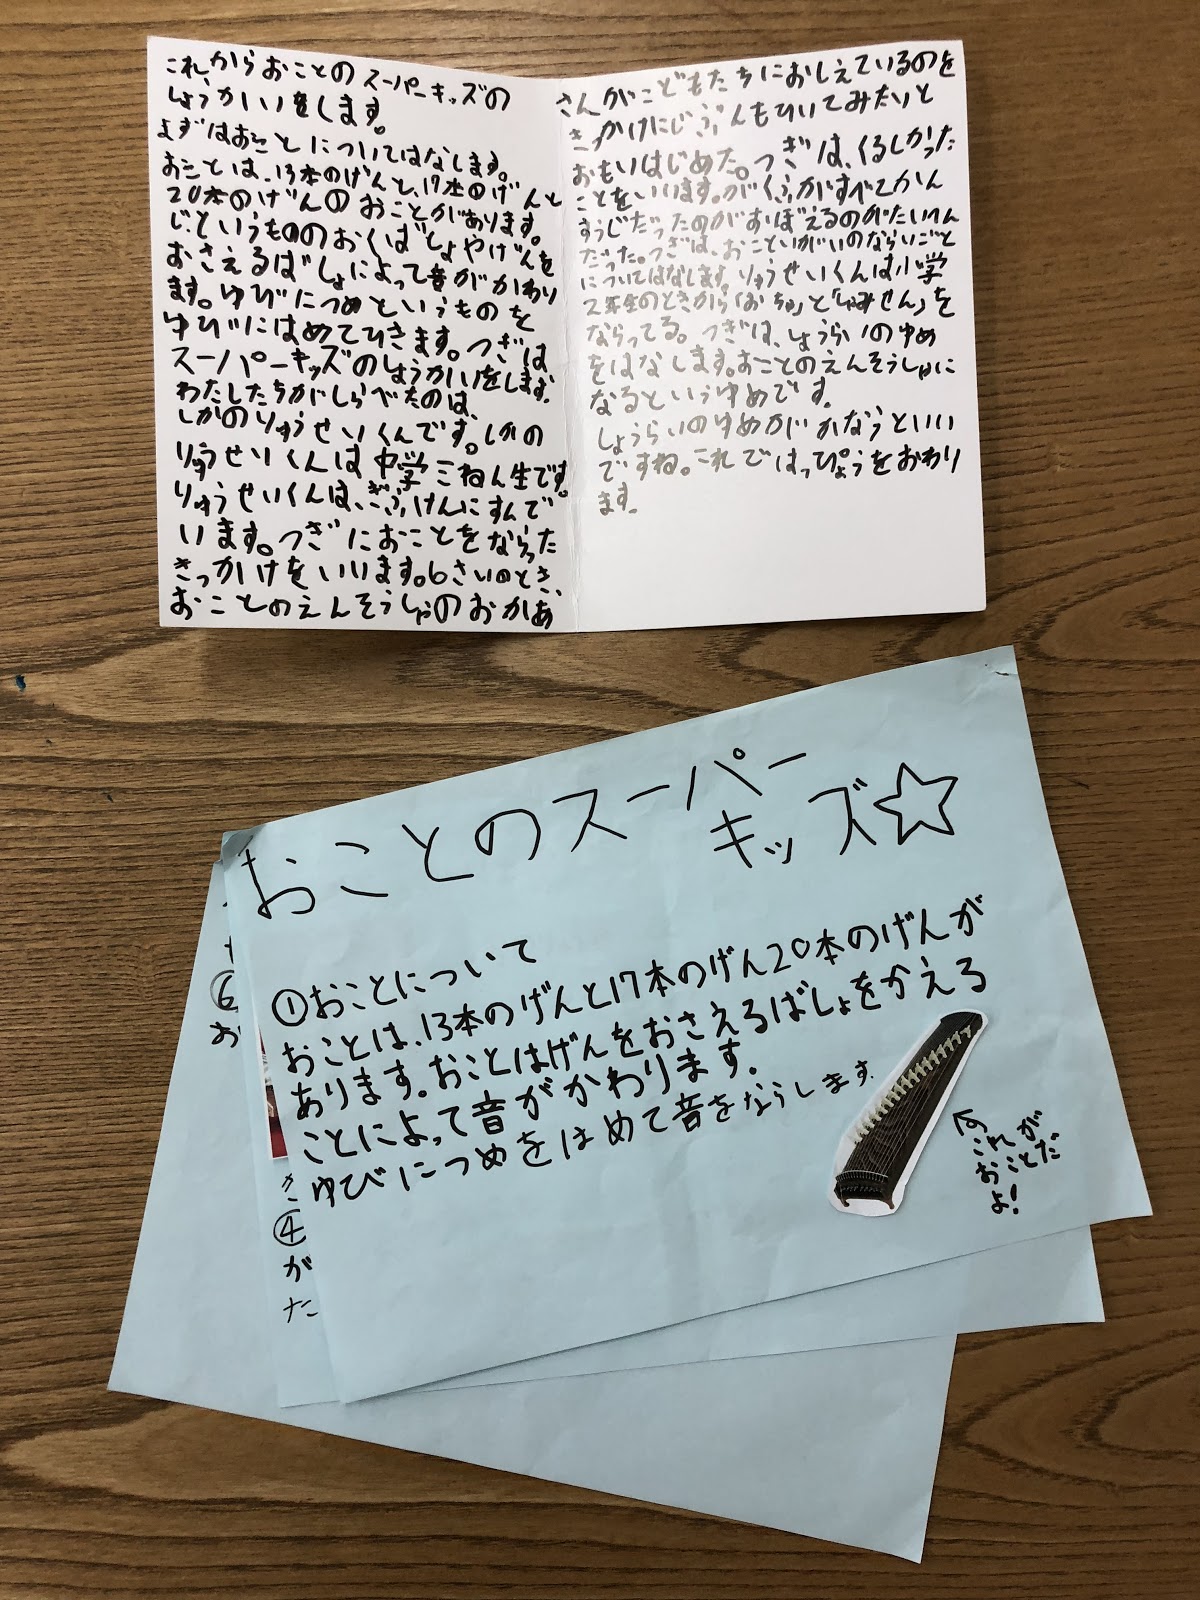 これからおことのスーパーキッズの
しょうかいをします。
まずはおことについてはなします。
おことは、13本のげんと、17本のげんと
20本のげんのおことがあります。
じ、というもののおくばしょやげんを
おさえるばしょによって音がかわり
ます。ゆびにつめというものを
ゆびにはめてひきます。つぎは
スーパーキッズのしょうかいをします。
わたしたちがしらべたのは、
しかのりゅうせいくんです。しかの
りゅうせいくんは中学三ねん生です。
りゅうせいくんは、ぎふけんにすんで
います。つぎにおことをならった
きっかけをいいます。6さいのとき、
おことのえんそうしゃのおかあ
さんがこどもたちにおしえているのを
きっかけにじぶんもひいてみたいと
おもいはじめた。つぎは、くるしかった
ことをいいます。がくふがすべてかん
すうじだったのがおぼえるのがたいへん
だった。つぎは、おこといがいのならいごと
についてはなします。りゅうせいくんは小学
2年生のときから「おちゃ」と「しゃみせん」を
ならってる。つぎは、しょうらいのゆめ
をはなします。おことのえんそうしゃに
なるというゆめです。
しょうらいのゆめがかなうといい
ですね。これではっぴょうをおわり
ます。
おことのスーパー
キッズ☆
①おことについて
おことは、13本のげんと17本のげん20本のげんが
あります。おことはげんをおさえるばしょをかえる
ことによって音がかわります。
ゆびにつめをはめて音をならします。
↖これが
おことだ
よ!
⑥
お
き
④
が
た